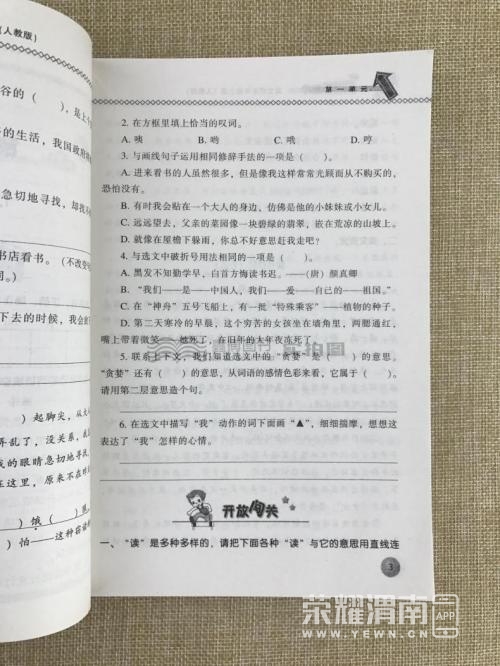 （人教版）
谷的（　　），是上个
的生活，我国政府
急切地寻找，却找不
书店看书。（不改变句
同。）
下去的时候，我会
）起脚尖，从大
弄乱了，没关系，我
我的眼睛急切地寻找
在这里，原来不在
）饿（　　）熬
）怕——这种窃
第一单元
2. 在方框里填上恰当的叹词。
A. 咦　B. 哟　C. 哦　D. 哼
3. 与画线句子运用相同修辞手法的一项是（　　）。
A. 进来看书的人虽然很多，但是像我这样常常光顾而从不购买的，
恐怕没有。
B. 有时我会贴在一个大人的身边，仿佛是他的小妹妹或小女儿。
C. 远远望去，父亲的菜园像一块碧绿的翡翠，嵌在荒凉的山坡上。
D. 就像在屋檐下躲雨，你总不好意思赶我走吧？
4. 与选文中破折号用法相同的一项是（　　）。
A. 黑发不知勤学早，白首方悔读书迟。——（唐）颜真卿
B. “我们——是——中国人，我们——爱——自己的——祖国。”
C. 在“神舟”五号飞船上，有一批“特殊乘客”——植物的种子。
D. 第二天寒冷的早晨，这个穷苦的女孩坐在墙角里，两腮通红，
嘴上带着微笑——她死了，在旧年的大年夜冻死了。
5. 联系上下文，我们知道选文中的“贪婪”是（　　）的意思，
“贪婪”还有（　　）的意思，从词语的感情色彩来看，它属于（　　）。
请用第二层意思造个句。
6. 在选文中描写“我”动作的词下面画“▲”，细细揣摩，想想这
表达了“我”怎样的心情。
开放闯关
一、“读”是多种多样的，请把下面各种“读”与它的意思用直线连
3
荣耀渭南 APP
WWW.YEWN.CN